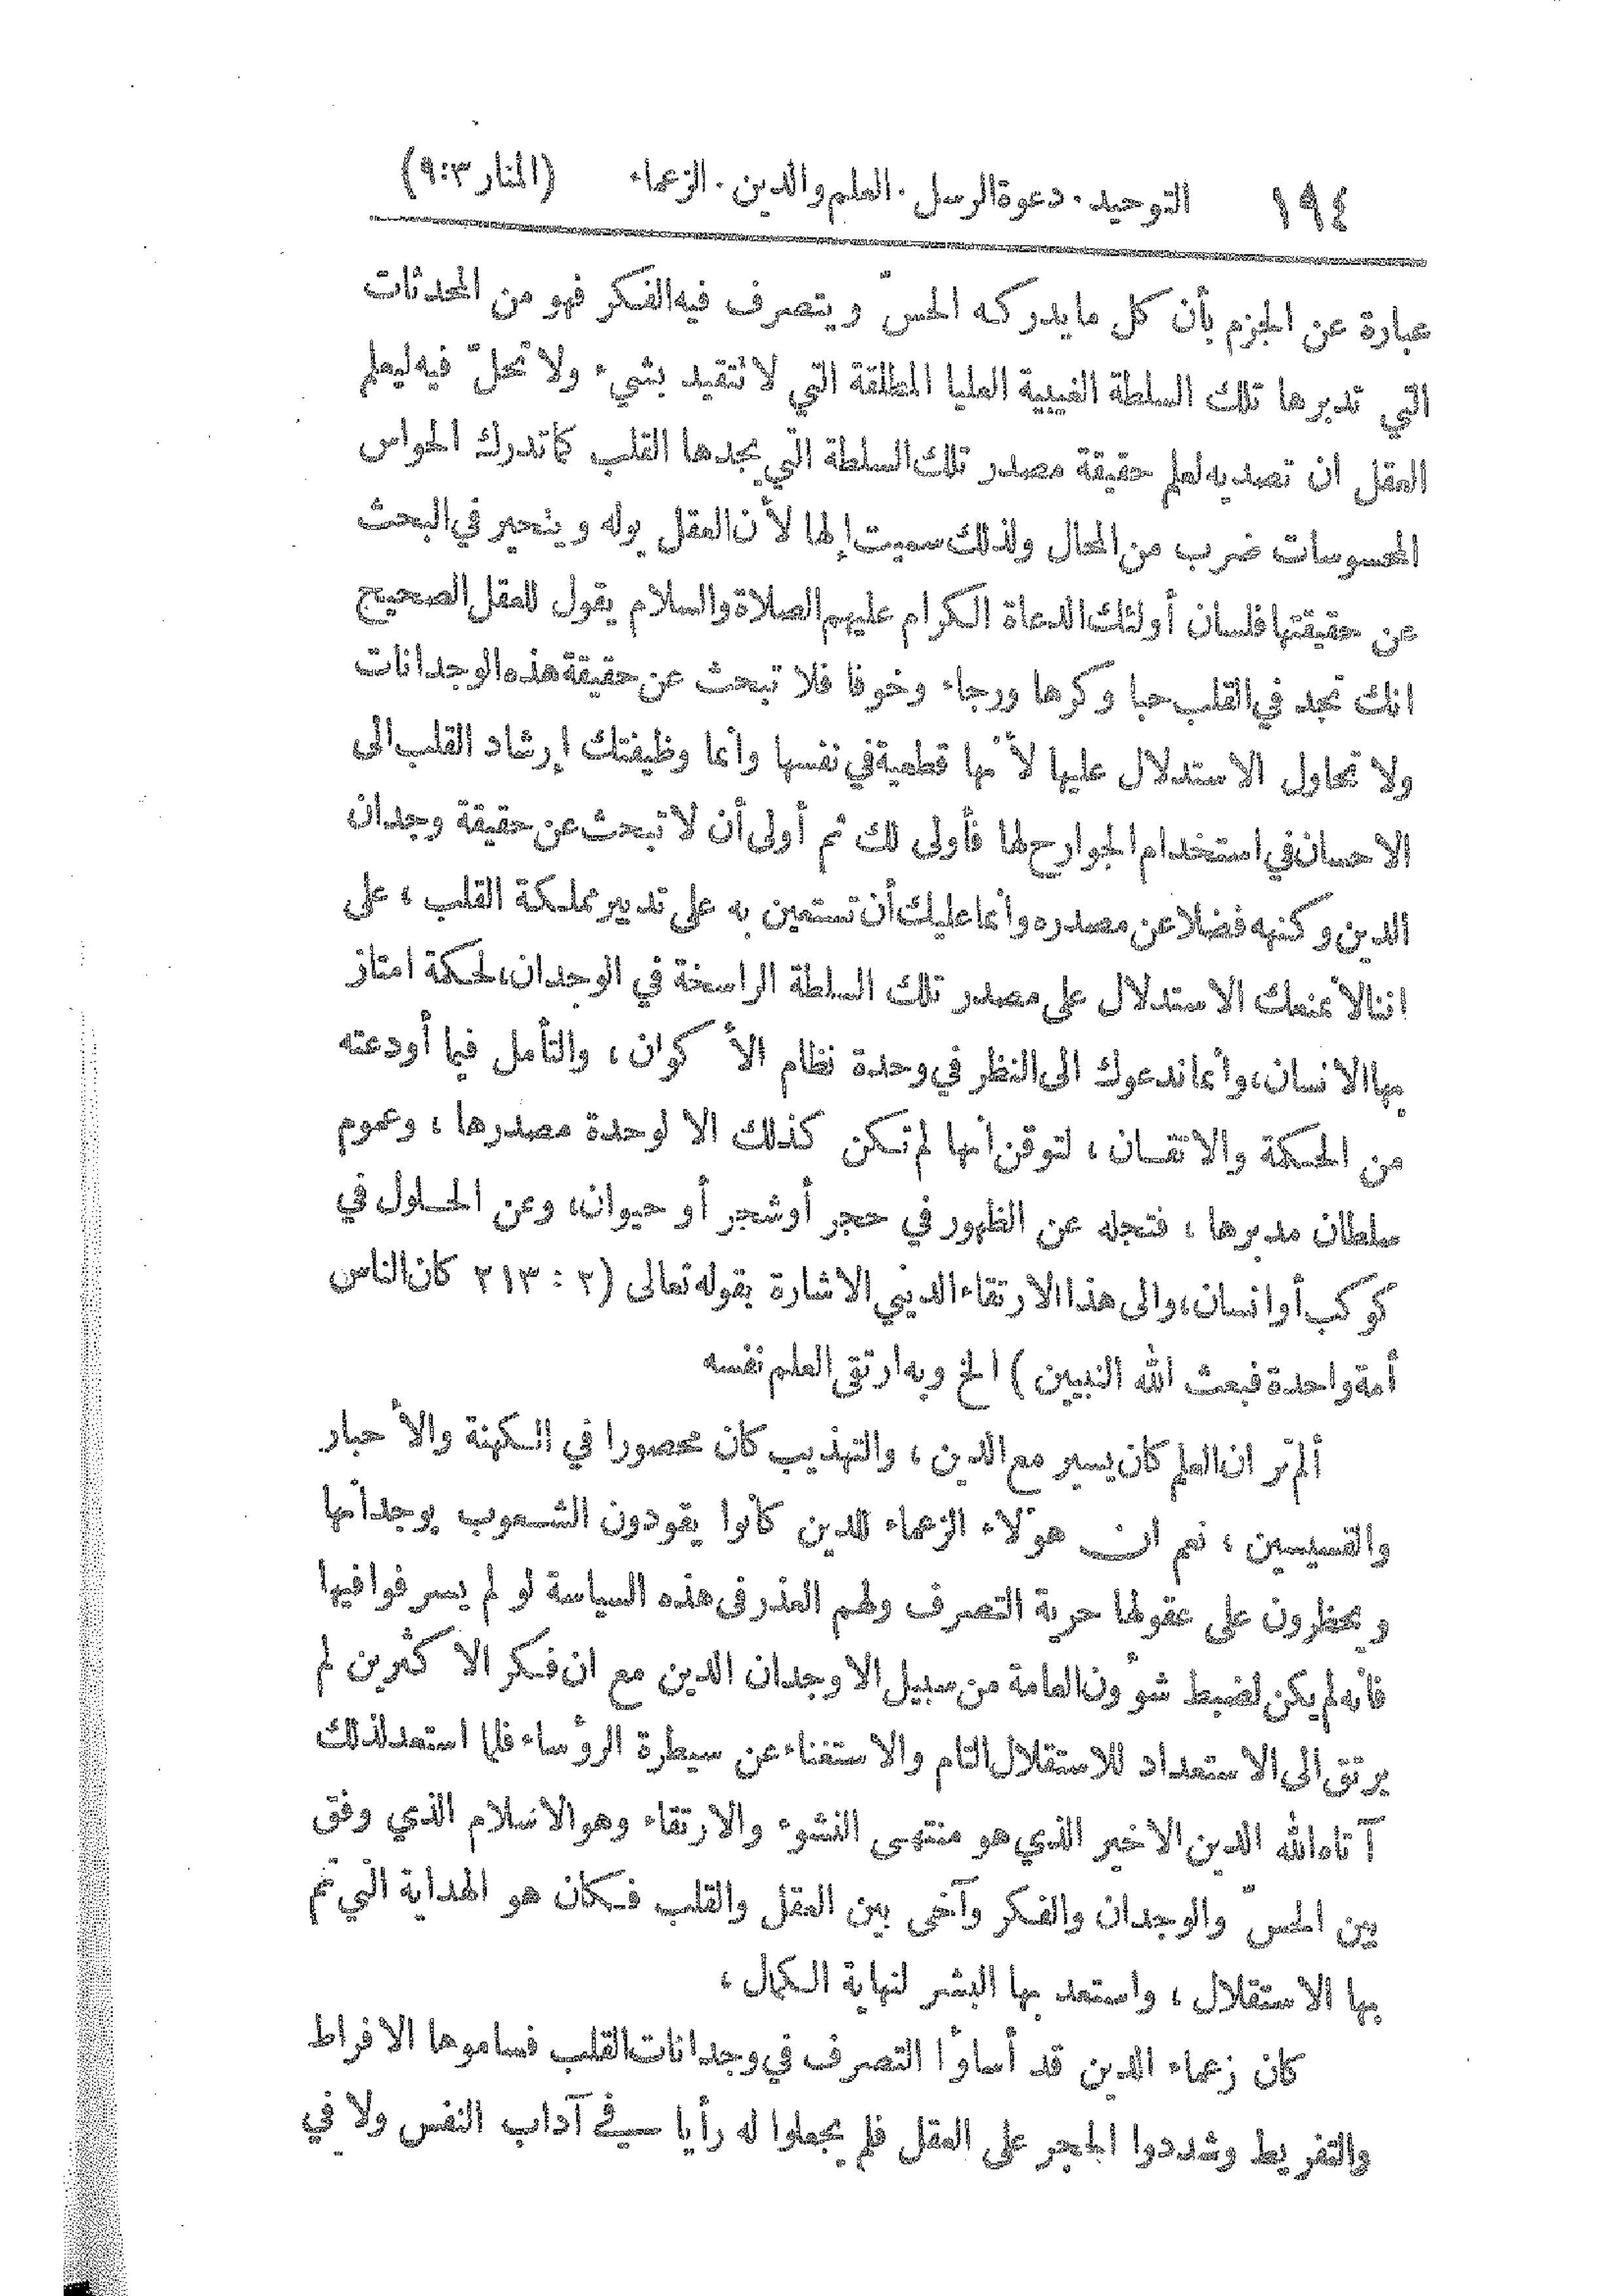 ١٩٤ التوحيد . دعوة الرسل . العلم والدين . الزعماء (المنار ٣:٩)
عبارة عن الجزم بأن كل ما يدركه الحسّ ويتصرف فيه الفكر فهو من المحدثات
التي تدبرها تلك السلطة الغيبية العليا المطلقة التي لا تتقيد بشيء ولا تحلّ فيه ليعلم
العقل ان تصديه لعلم حقيقة مصدر تلك السلطة التي يجدها القلب كما تدرك الحواس
المحسوسات ضرب من المحال ولذلك سميت إلها لأن العقل يوله ويتحير في البحث
عن حقيقتها فلسان أولئك الدعاة الكرام عليهم الصلاة والسلام يقول للعقل الصحيح
انك تجد في القلب حبا وكرها ورجاء وخوفا فلا تبحث عن حقيقة هذه الوجدانات
ولا تحاول الاستدلال عليها لأنها قطعية في نفسها وانما وظيفتك إرشاد القلب الى
الاحسان في استخدام الجوارح لها فأولى لك ثم أولى أن لا تبحث عن حقيقة وجدان
الدين وكنهه فضلا عن مصدره وانما عليك أن تستعين به على تدبير مملكة القلب ، على
اننا لا نمنعك الاستدلال على مصدر تلك السلطة الراسخة في الوجدان، لحكمة امتاز
بها الانسان، وانما ندعوك الى النظر في وحدة نظام الأكوان ، والتأمل فيما أودعته
من الحكمة والاتقان ، لتوقن انها لم تكن كذلك الا لوحدة مصدرها ، وعموم
سلطان مدبرها ، فتجله عن الظهور في حجر أو شجر أو حيوان، وعن الحلول في
كوكب أو انسان، والى هذا الارتقاء الديني الاشارة بقوله تعالى (٢ : ٢١٣ كان الناس
أمة واحدة فبعث الله النبيين ) الخ وبه ارتقى العلم نفسه
ألم تر ان العلم كان يسير مع الدين ، والتهذيب كان محصورا في الكهنة والأحبار
والقسيسين ، نعم ان هؤلاء الزعماء للدين كانوا يقودون الشعوب بوجدانها
ويحظرون على عقولها حرية التصرف ولهم العذر فى هذه السياسة لو لم يسرفوا فيها
فانه لم يكن لضبط شؤون العامة من سبيل الا وجدان الدين مع ان فكر الاكثرين لم
يرتق الى الاستعداد للاستقلال التام والاستغناء عن سيطرة الرؤساء فلما استعد لذلك
آتاه الله الدين الاخير الذي هو منتهى النشوء والارتقاء وهو الاسلام الذي وفق
بين الحسّ والوجدان والفكر وآخى بين العقل والقلب فكان هو الهداية التي تم
بها الاستقلال ، واستعد بها البشر لنهاية الكمال ،
كان زعماء الدين قد أساؤا التصرف في وجدانات القلب فساموها الافراط
والتفريط وشددوا الحجر على العقل فلم يجعلوا له رأيا في آداب النفس ولا في